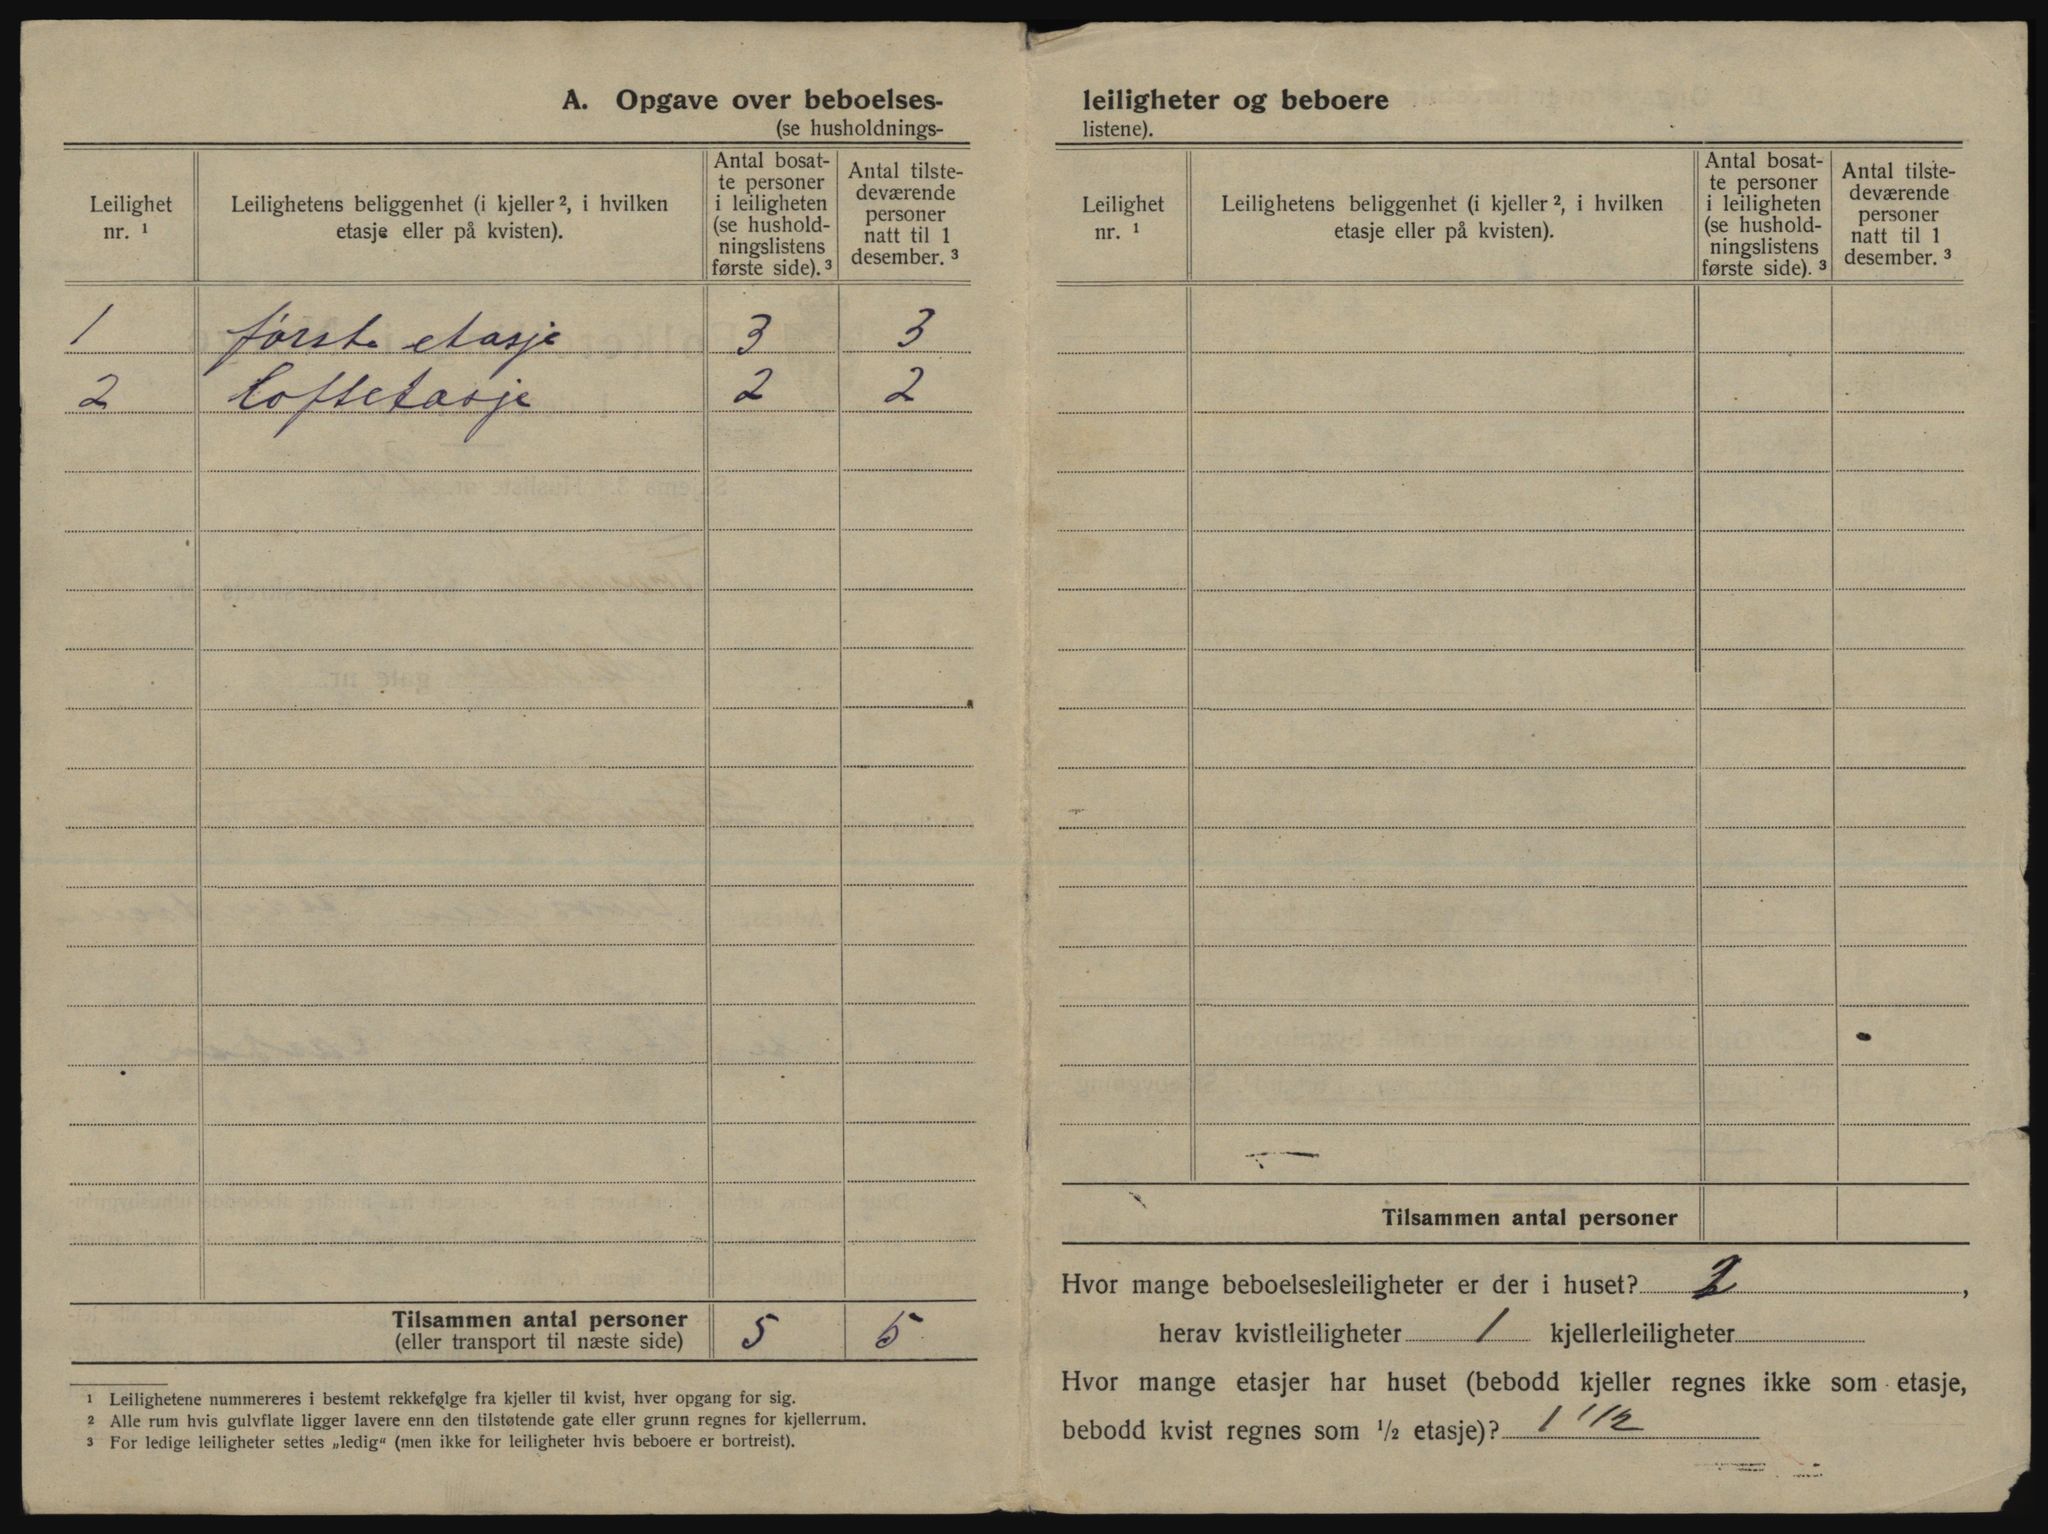 A. Opgave over beboelses-
(se husholdnings-
Leilighet
nr. ¹
Leilighetens beliggenhet (i kjeller ², i hvilken
etasje eller på kvisten).
Antal bosat-
te personer
i leiligheten
(se hushold-
ningslistens
første side). ³
Antal tilste-
deværende
personer
natt til 1
desember. ³
1 første etasje 3 3
2 Loftetasje 2 2
Tilsammen antal personer
(eller transport til næste side)
5 5
¹ Leilighetene nummereres i bestemt rekkefølge fra kjeller til kvist, hver opgang for sig.
² Alle rum hvis gulvflate ligger lavere enn den tilstøtende gate eller grunn regnes for kjellerrum.
³ For ledige leiligheter settes „ledig“ (men ikke for leiligheter hvis beboere er bortreist).
leiligheter og beboere
listene).
Leilighet
nr. ¹
Leilighetens beliggenhet (i kjeller ², i hvilken
etasje eller på kvisten).
Antal bosat-
te personer
i leiligheten
(se hushold-
ningslistens
første side). ³
Antal tilste-
deværende
personer
natt til 1
desember. ³
Tilsammen antal personer
Hvor mange beboelsesleiligheter er der i huset? 2,
herav kvistleiligheter 1 kjellerleiligheter
Hvor mange etasjer har huset (bebodd kjeller regnes ikke som etasje,
bebodd kvist regnes som ½ etasje)? 1 1/2